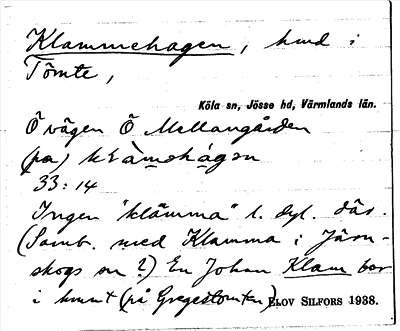 Klammehagen, hmd i
Tömte,
Köla sn, Jösse hd, Värmlands län.
Ö vägen Ö Mellangården
(pa) klàmohágan
33:14
Ingen "klämma" l. dyl. där.
(Samb. med Klamma i Järn-
skogs sn?) En Johan Klam bor
i hmnt (på Gregestomten)
ELOV SILFORS 1938.